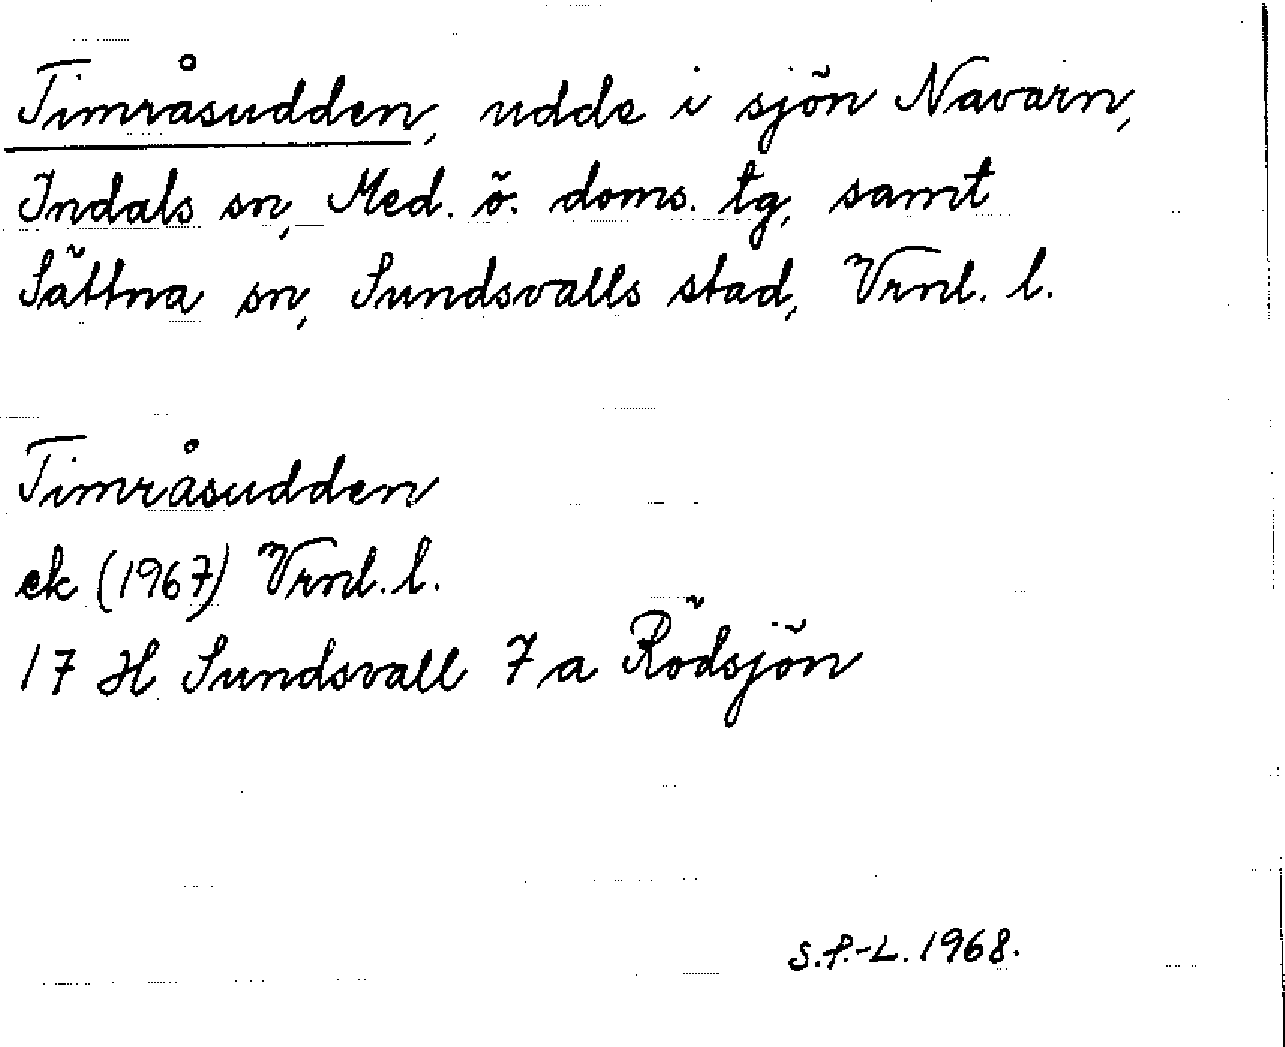 Timråsudden, udde i sjön Navarn,
Indals sn, Med. ö. doms. tg, samt
Sättna sn, Sundsvalls stad, Vrnl. l.
Timråsudden
ek (1967) Vrnl. l.
17 H Sundsvall 7a Rödsjön
S.P.-L. 1968.